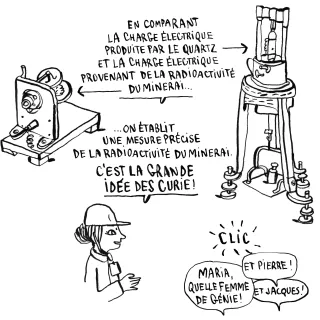 EN COMPARANT
LA CHARGE ÉLECTRIQUE
PRODUITE PAR LE QUARTZ
ET LA CHARGE ÉLECTRIQUE
PROVENANT DE LA RADIOACTIVITÉ
DU MINERAI...
...ON ÉTABLIT
UNE MESURE PRÉCISE
DE LA RADIOACTIVITÉ DU MINERAI.
C'EST LA GRANDE
IDÉE DES CURIE!
CLIC
MARIA,
QUELLE FEMME
DE GÉNIE!
ET PIERRE!
ET JACQUES!